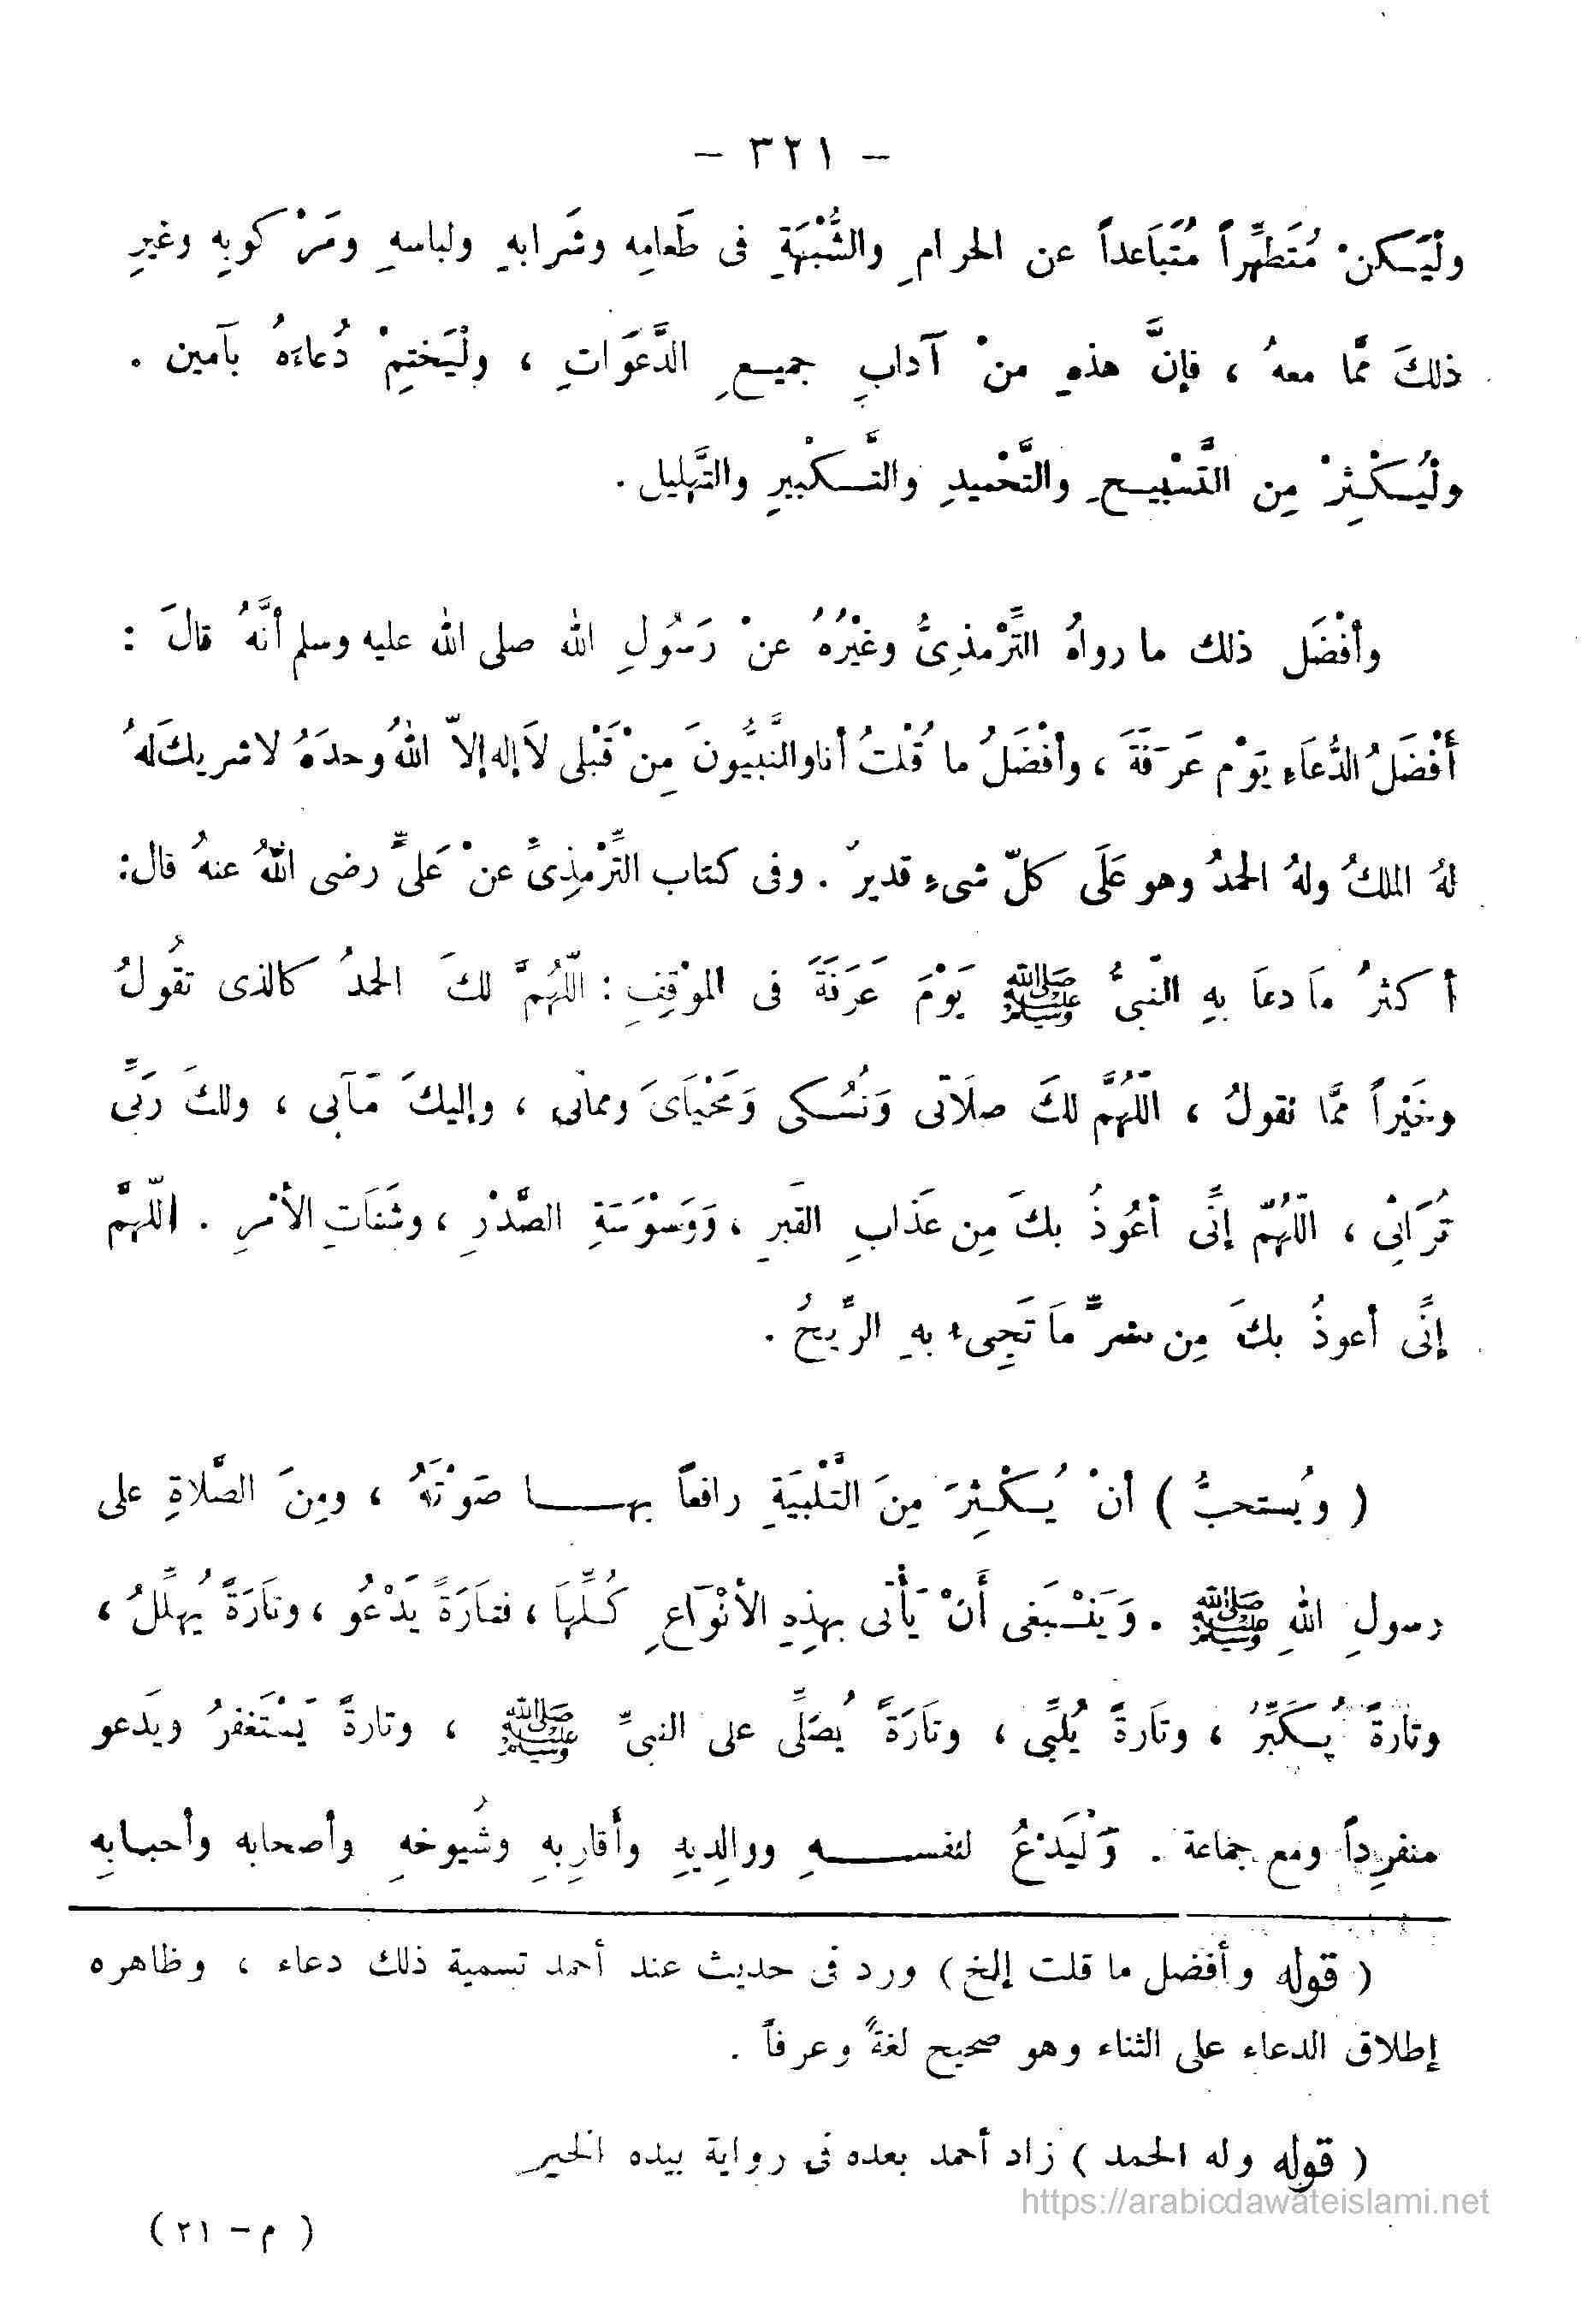 - ٣٢١ -
ولْيَكنْ مُتَطهِّراً مُتَبَاعداً عن الحرامِ والشُّبْهَةِ فى طَعامِه وشَرابهِ ولباسهِ ومَرْكوبِهِ وغيرِ
ذلكَ ممَّا معهُ ، فإنَّ هذهِ منْ آدابِ جميعِ الدَّعَوَاتِ ، ولْيَختِمْ دُعاءَهُ بآمين .
ولْيُكْثِرْ مِن التَّسْبيحِ والتَّحْميدِ والتَّكْبيرِ والتَّهليل .
وأفْضَل ذلك ما رواهُ التِّرْمذِىُّ وغيْرُهُ عنْ رَسُولِ الله صلى الله عليه وسلم أنَّهُ قالَ :
أَفْضَلُ الدُّعَاءِ يَوْم عَرَفَةَ ، وأفْضَلُ ما قُلْتُ أنا والنَّبيُّونَ مِنْ قَبْلى لاَ إله إلاّ اللهُ وحدَهُ لا شريكَ لهُ
لهُ الملكُ ولهُ الحمدُ وهو عَلَى كلّ شىءٍ قديرٌ . وفى كتاب التِّرْمذِىِّ عنْ عَلىٍّ رضى اللهُ عنهُ قال:
أكثرُ مَا دعاَ بهِ النَّبىُّ ﷺ يَوْمَ عَرَفَةَ فى الموْقِفِ : اللّهُمَّ لكَ الحمدُ كالذى تقُولُ
وخَيْراً ممَّا نقولُ ، اللّهُمَّ لكَ صلَاتى وَنُسُكى وَمَحْيَاىَ ومماتى ، وإليكَ مَآبى ، ولكَ رَبِّى
تُرَاثِى ، اللّهُمّ إنِّى أعُوذُ بكَ مِن عَذابِ القَبرِ ، وَوَسْوَسَةِ الصَّدْرِ ، وشَتَاتِ الأمْرِ . اللّهمَّ
إنِّى أعوذُ بكَ مِن شرِّ مَا تَجِىء بهِ الرِّيحُ .
( ويُستحبُّ ) أنْ يُكْثِرَ مِنَ التَّلْبيَةِ رافعاً بها صَوْتَهُ ، ومِنَ الصَّلاةِ على
رسولِ اللهِ ﷺ . وَيَنْبَغى أَنْ يَأْتى بهذِهِ الأنْوَاعِ كُلِّهَا ، فتاَرَةً يَدْعُو ، وتاَرَةً يُهلِّلُ ،
وتارَةً يُكَبِّرُ ، وتَارةً يُلبِّى ، وتاَرَةً يُصَلِّى على النبىِّ ﷺ ، وتارةً يَسْتَغفرُ ويَدعو
منفرِداً ومع جماعة . وَلْيَدْعُ لنفسهِ ووالِديهِ وأقارِبهِ وشُيوخهِ وأصحابه وأحبابِهِ
( قوله وأفضل ما قلت إلخ ) ورد فى حديث عند أحمد تسمية ذلك دعاء ، وظاهره
إطلاق الدعاء على الثناء وهو صحيح لغةً وعرفاً .
( قوله وله الحمد ) زاد أحمد بعده فى رواية بيده الخير
https://arabicdawateislami.net
( م - ٢١ )